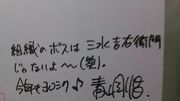 組織のボスは三水吉右衛門
じゃないよ〜(笑)。
今年もヨロシク♪